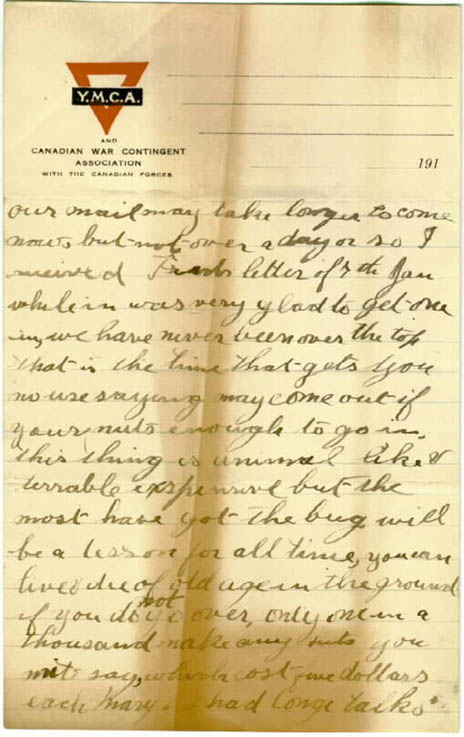 Y.M.C.A.
AND
CANADIAN WAR CONTINGENT
ASSOCIATION
WITH THE CANADIAN FORCES
191
our mail may take longer to come
now but not over a day or so I
received letter of 7th Jan
while in was very glad to get one
we have never been over the top
that is the time that gets you
no use saying may come out if
your nuts enough to go in.
this thing is &
terrable exspensive but the
most have got the bug will
be a lesson for all time, you can
live & die of old age in the ground
if you do not go over, only one in a
thousand make any you
say, which cost five dollars
each Mary & I had longe talks